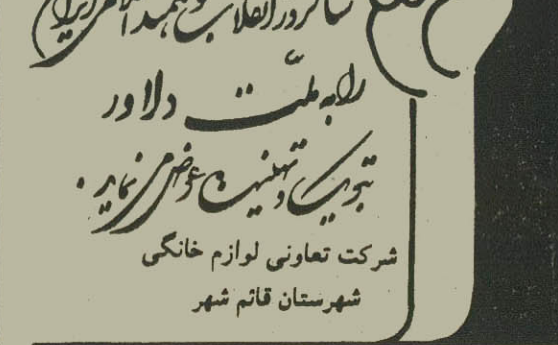 سالگرد انقلاب شکوهمند اسلامی ایران
را به ملّت دلاور
تبریک و تهنیت عرض می نماید.
شرکت تعاونی لوازم خانگی
شهرستان قائم شهر